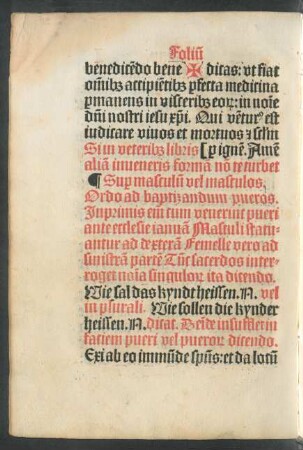 Foliū
benedicēdo bene ✠ ditas: vt fiat
om̄ibꝫ accipiētibꝫ ꝑfecta medicina
ꝑmanens in visceribꝫ eoꝝ: in noīe
dn̄i nostri iesu xp̄i. Qui vētur⁹ est
iudicare viuos et mortuos ⁊ sclm̄
Si in veteribꝫ libris [ꝑ ignē. Amē
aliā inueneris formā nō te turbet
¶ Sup masculū vel masculos.
Ordo ad baptizandum pueros.
Inprimis em̄ tum venerint pueri
ante ecclesie ianuā Masculi statu-
antur ad dexterā Femelle vero ad
sinistrā partē Tūc sacerdos inter-
roget noīa singuloꝝ ita dicendo.
Wie sal das kyndt heissen. N. vel
in plurali. Wie sollen die kynder
heissen. N. dicat. Deīde insufflet in
faciem pueri vel pueroꝝ dicendo.
Exi ab eo immūde spūs: et da locū